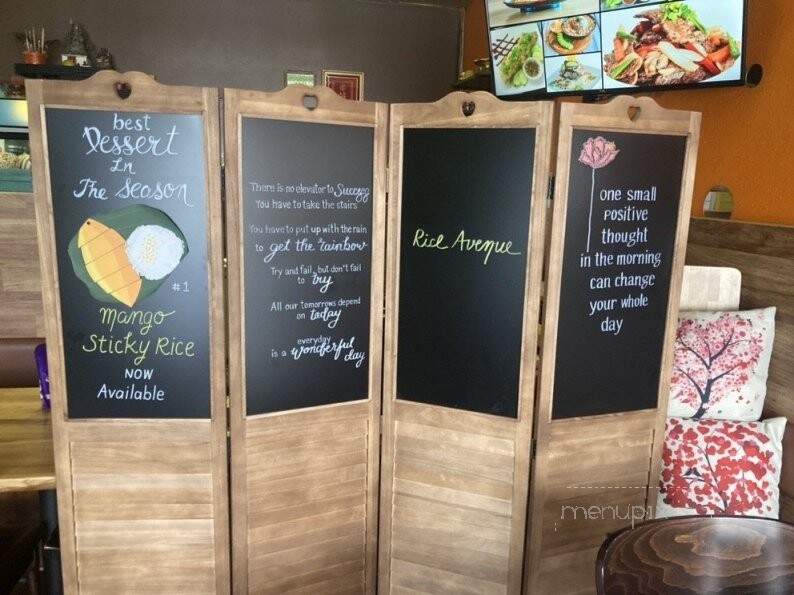 best
Dessert
In
The Season
#1
Mango
Sticky Rice
NOW
Available
There is no elevator to Success
You have to take the stairs
You have to put up with the rain
to get the rainbow
Try and fail, but don't fail
to try
All our tomorrows depend
on today
everyday
is a wonderful day
Rice Avenue
one small
positive
thought
in the morning
can change
your whole
day
menupix